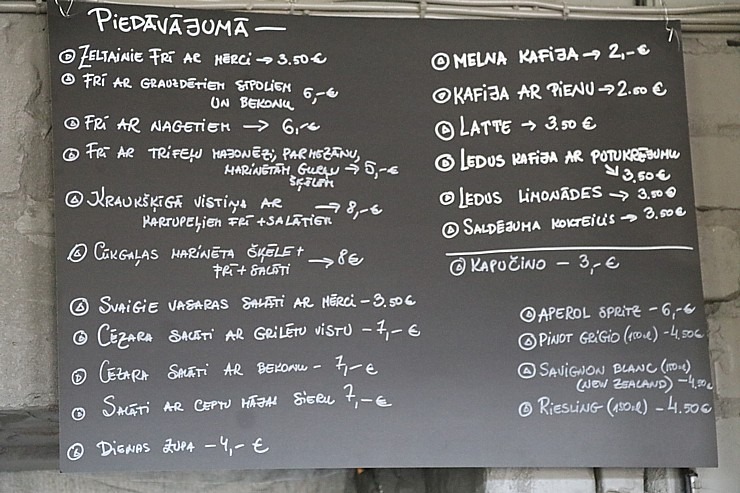 PIEDĀVĀJUMĀ —
ZELTAINIE FRĪ AR MĒRCI → 3.50 €
FRĪ AR GRAUZDĒTIEM SĪPOLIEM
UN BEKONU 6,- €
FRĪ AR NAGETIEM → 6,- €
FRĪ AR TRIFEĻU MAJONĒZI, PARMEZĀNU,
MARINĒTĀM GURĶU → 5,- €
ŠĶĒLĒM
KRAUKŠĶĪGĀ VISTIŅA AR → 8,- €
KARTUPEĻIEM FRĪ + SALĀTIEM
CŪKGAĻAS MARINĒTA ŠĶĒLE +
FRĪ + SALĀTI → 8 €
SVAIGIE VASARAS SALĀTI AR MĒRCI - 3.50 €
CĒZARA SALĀTI AR GRILĒTU VISTU - 7,- €
CĒZARA SALĀTI AR BEKONU - 7,- €
SALĀTI AR CEPTU MĀJAS SIERU 7,- €
DIENAS ZUPA - 4,- €
MELNA KAFIJA → 2,- €
KAFIJA AR PIENU → 2.50 €
LATTE → 3.50 €
LEDUS KAFIJA AR PUTUKRĒJUMU
↘ 3.50 €
LEDUS LIMONĀDES → 3.50 €
SALDĒJUMA KOKTEILIS → 3.50 €
KAPUČINO — 3,- €
APEROL SPRITZ - 6,- €
PINOT GRIGIO (150ml) - 4.50 €
SAVIGNON BLANC (150ml)
(NEW ZEALAND) - 4.50 €
RIESLING (150ml) - 4.50 €